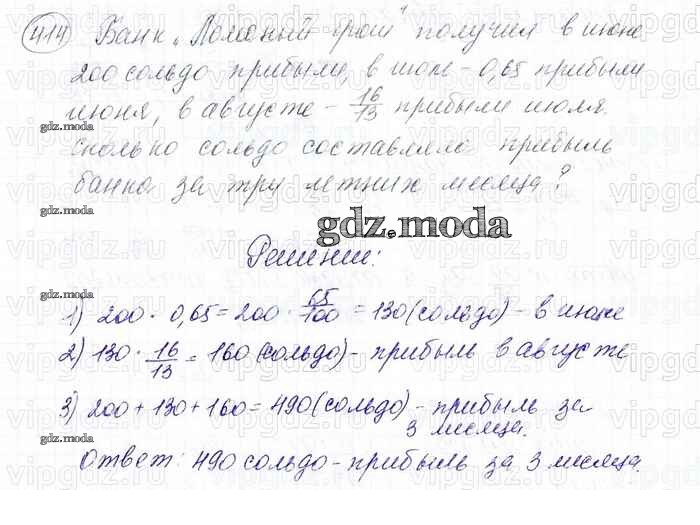 414 Банк "Ломаный грош" получил в июне
200 сольдо прибыли, в июле - 0,65 прибыли
июня, в августе - 16/13 прибыли июля.
gdz.moda
Сколько сольдо составляла прибыль
gdz.moda
банка за три летних месяца?
gdz.moda
gdz.moda
Решение:
gdz.moda
1) 200 · 0,65 = 200 · 65/100 = 130 (сольдо) - в июле
2) 130 · 16/13 = 160 (сольдо) - прибыль в августе
3) 200 + 130 + 160 = 490 (сольдо) - прибыль за
3 месяца.
gdz.moda
Ответ: 490 сольдо - прибыль за 3 месяца.
gdz.moda